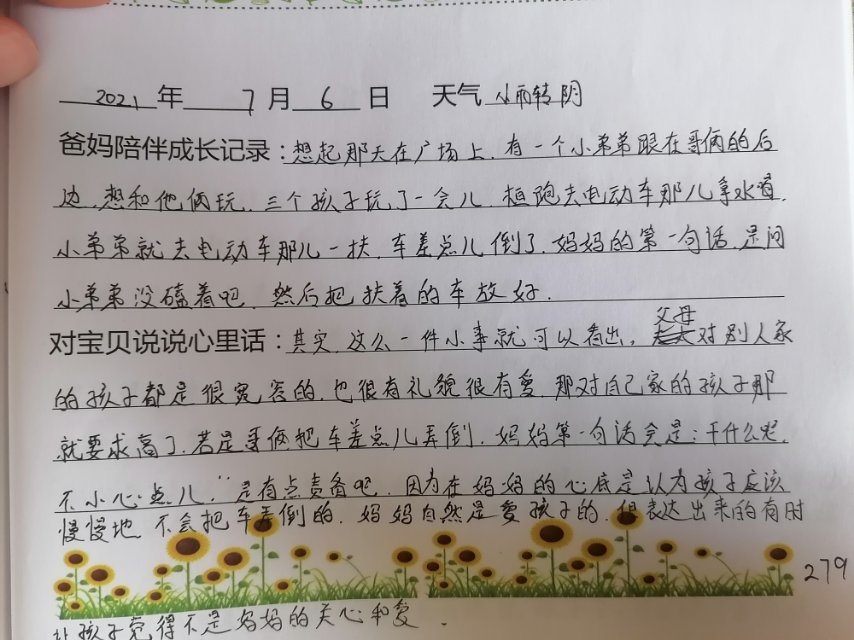 2021年 7月 6日 天气 小雨转阴
爸妈陪伴成长记录：想起那天在广场上，有一个小弟弟跟在哥俩的后
边，想和他俩玩，三个孩子玩了一会儿，桓跑去电动车那儿拿水喝，
小弟弟就去电动车那儿一扶，车差点儿倒了，妈妈的第一句话，是问
小弟弟没磕着吧，然后把扶着的车放好．
父母
对宝贝说说心里话：其实，这么一件小事就可以看出，对别人家
的孩子都是很宽容的，也很有礼貌很有爱，那对自己家的孩子那
就要求高了，若是哥俩把车差点儿弄倒，妈妈第一句话会是：干什么呢，
不小心点儿，”是有点责备吧，因为在妈妈的心底是认为孩子应该
慢慢地，不会把车弄倒的．妈妈自然是爱孩子的，但表达出来的有时
279
让孩子觉得不是妈妈的关心和爱．